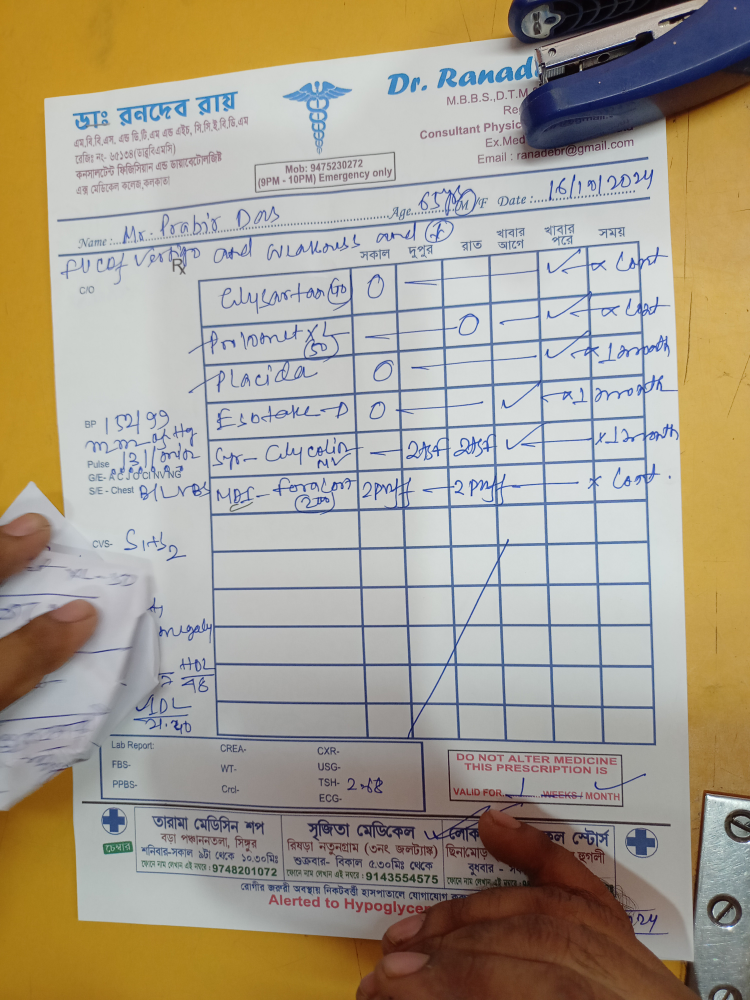 ডাঃ রনদেব রায়
এম.বি.বি.এস. এন্ড ডি.টি.এম এন্ড এইচ, সি.সি.ই.বি.ডি.এম
রেজিঃ নং- ৬৫১৩৪(ডাব্লুবিএমসি)
কনসালটেন্ট ফিজিসিয়ান এন্ড ডায়াবেটোলজিষ্ট
এক্স মেডিকেল কলেজ,কলকাতা
Mob: 9475230272
(9PM - 10PM) Emergency only
Dr. Ranade
M.B.B.S.,D.T.M
Re
Consultant Physic
Ex.Med
Email : ranadebr@gmail.com
Name : Mr. Prabir Das Age 65 yrs M/F Date : 16/10/2024
Vertigo and weakness and
Rx
C/O
সকাল দুপুর রাত খাবার আগে খাবার পরে সময়
O ✓ x Cont
Prolomet XL (50) O ✓ x Cont
Placida O ✓ x 1 month
O ✓ x 1 month
BP 152/99
mm of Hg
Syr - ✓ x 1 month
Pulse 131/min
G/E- A C J O Cl NV NG
S/E - Chest B/L VBS
MDI - Foracort (200) 2 puff 2 puff x Cont.
CVS- S1+S2
HDL
48
Lab Report: CREA- CXR-
FBS- WT- USG-
PPBS- Crcl- TSH- 2.68
ECG-
DO NOT ALTER MEDICINE
THIS PRESCRIPTION IS
VALID FOR 1 WEEKS / MONTH
চেম্বার
তারামা মেডিসিন শপ
বড়া পঞ্চাননতলা, সিঙ্গুর
শনিবার-সকাল ৯টা থেকে ১০.৩০মিঃ
ফোনে নাম লেখান এই নম্বরে : 9748201072
সৃজিতা মেডিকেল
রিষড়া নতুনগ্রাম (৩নং জলট্যাঙ্ক)
শুক্রবার- বিকাল ৫.৩০মিঃ থেকে
ফোনে নাম লেখান এই নম্বরে : 9143554575
লোক কল স্টোর্স
ছিনামোড় হুগলী
বুধবার - স
ফোনে নাম লেখান এই নম্বরে
রোগীর জরুরী অবস্থায় নিকটবর্ত্তী হাসপাতালে যোগাযোগ
Alerted to Hypoglycer